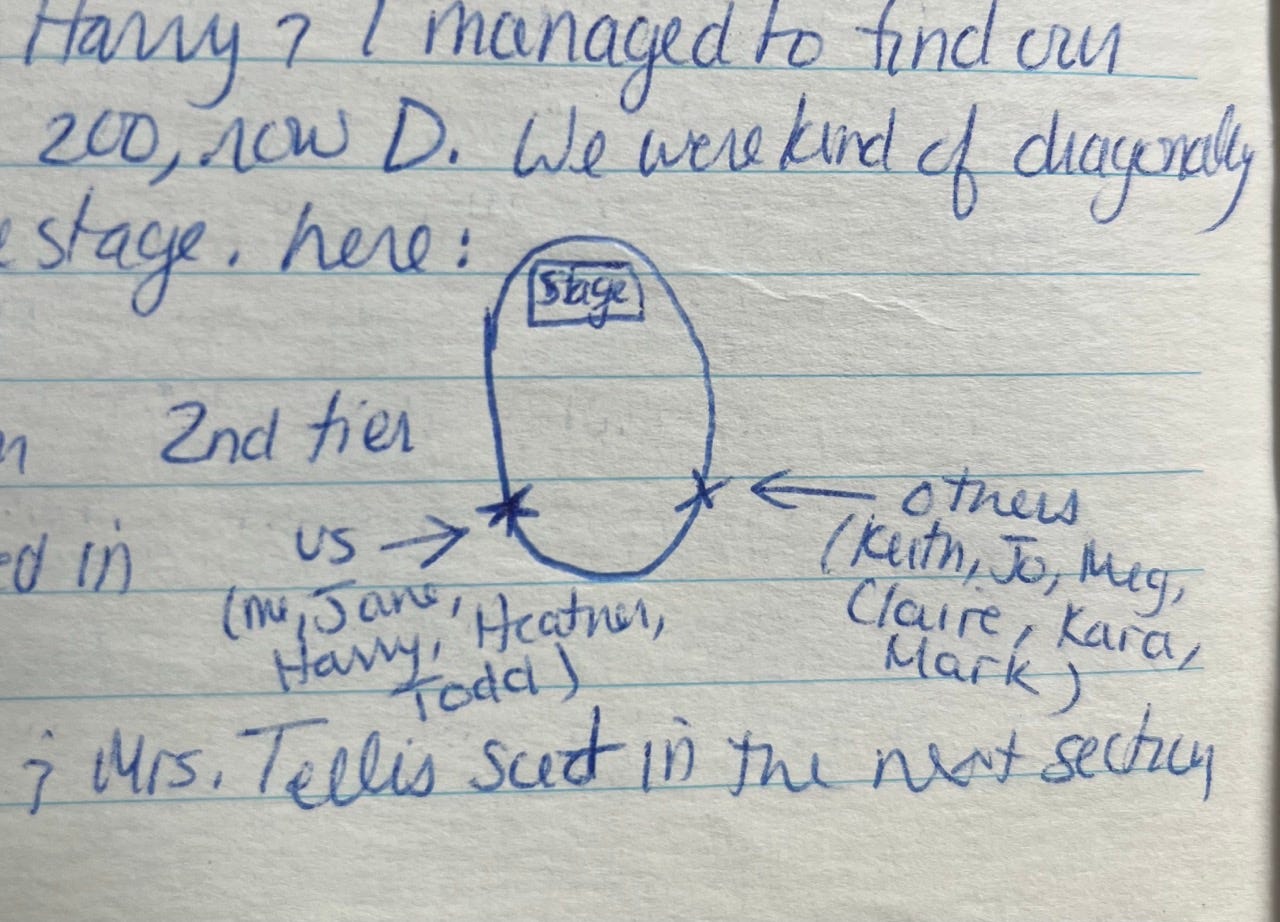 Harry & I managed to find our
200, row D. We were kind of diagonally
stage. here:
Stage
2nd tier
others
ed in
us
(Keith, Jo, Meg,
(me, Jane,
Claire, Kara,
Harry, Heather,
Mark)
Todd)
& Mrs. Tellis sat in the next section